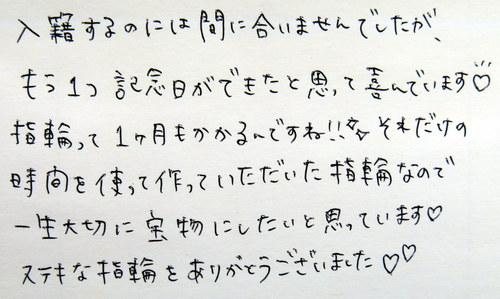 入籍するのには間に合いませんでしたが、
もう1つ記念日ができたと思って喜んでいます♡
指輪って1ヶ月もかかるんですね!!✨それだけの
時間を使って作っていただいた指輪なので
一生大切に宝物にしたいと思っています♡
ステキな指輪をありがとうございました♡♡